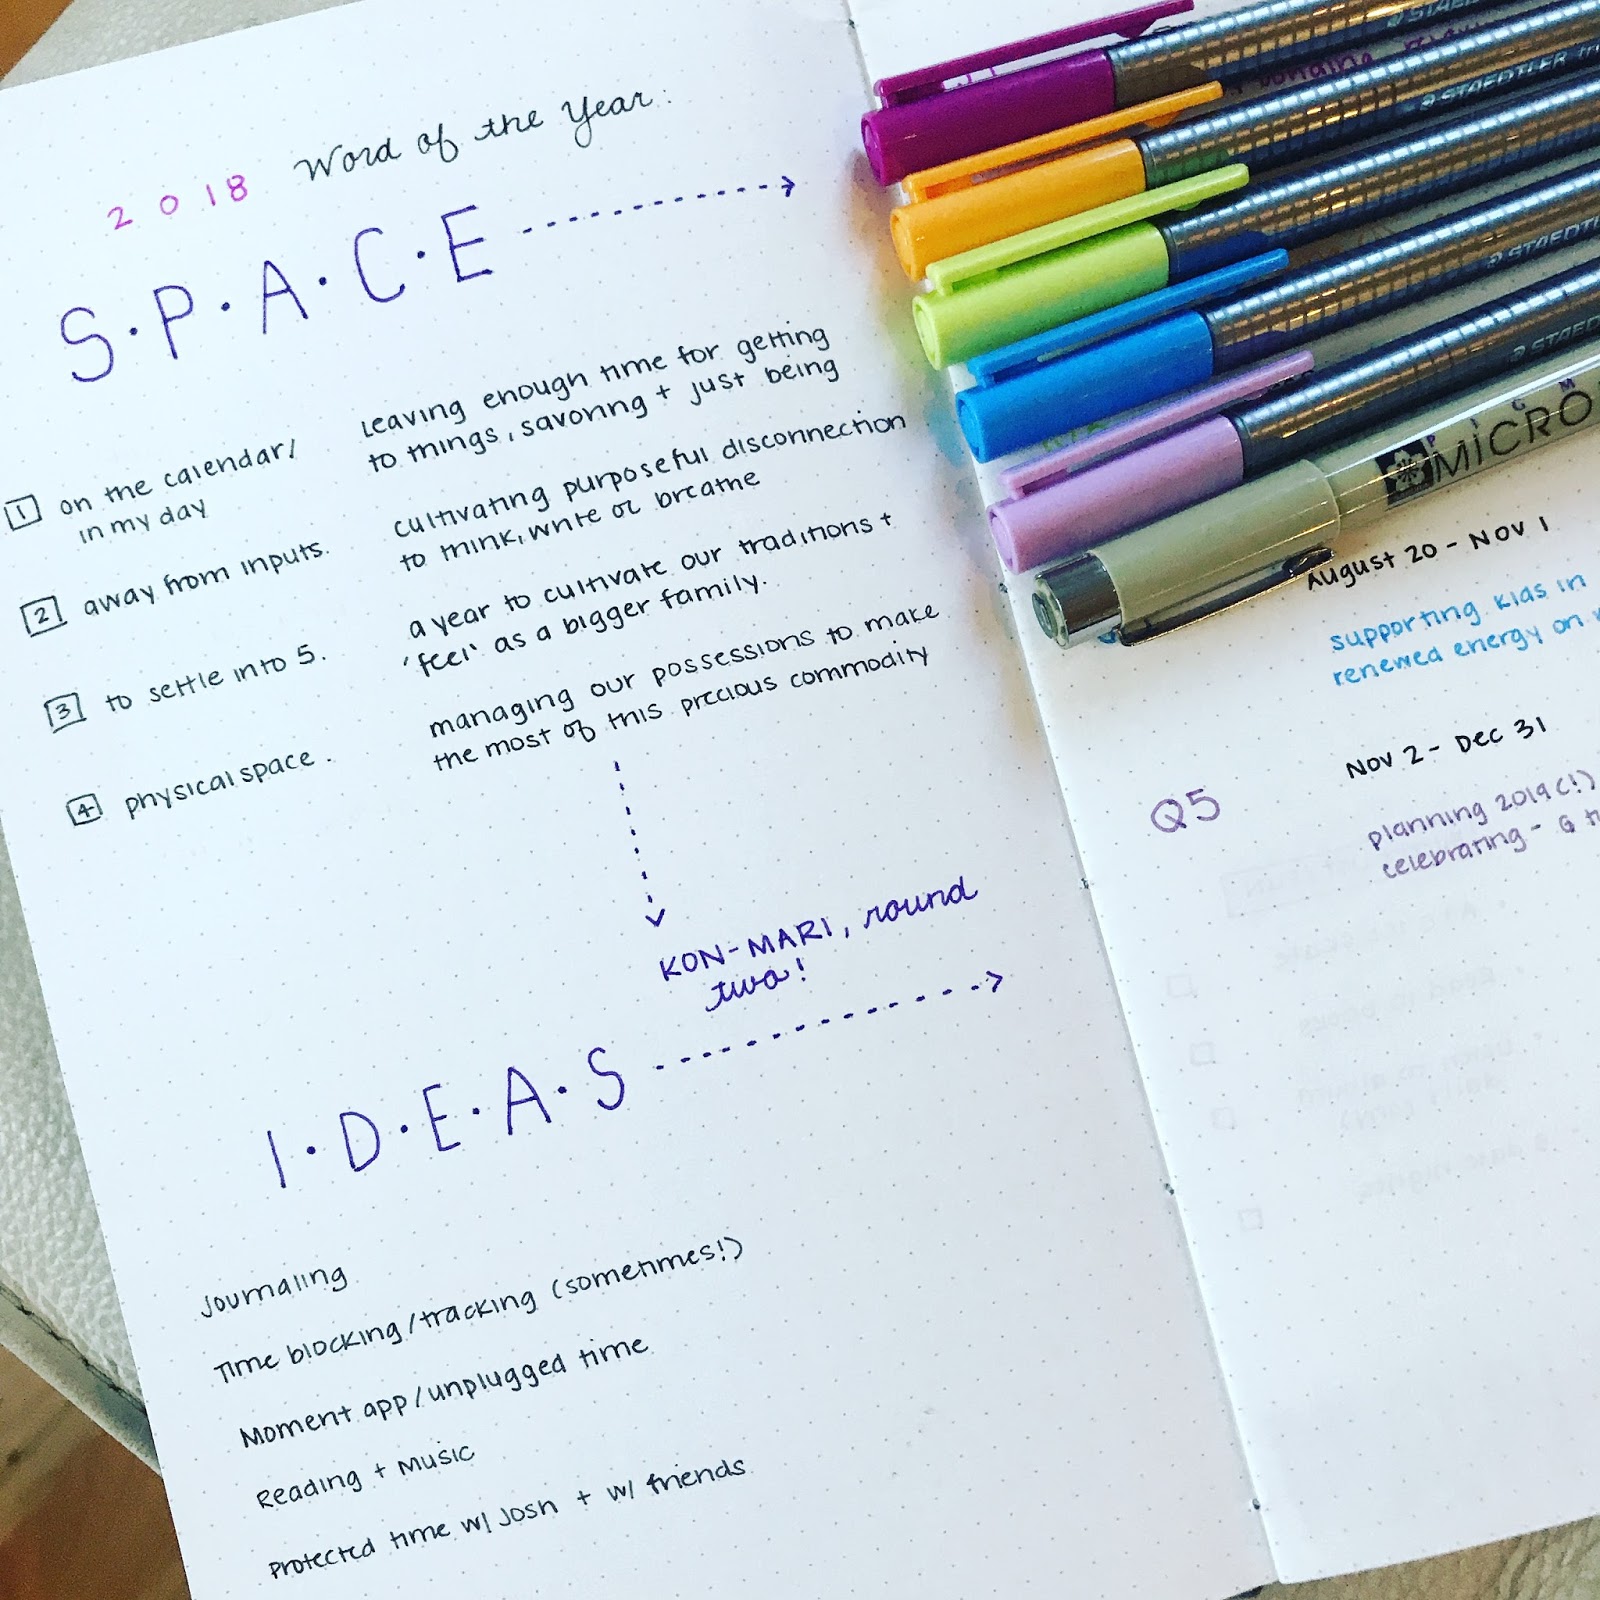 2018 Word of the Year:
S.P.A.C.E
1 on the calendar/
in my day
Leaving enough time for getting
to things, savoring + just being
2 away from inputs.
cultivating purposeful disconnection
to think, write or breathe
3 to settle into 5.
a year to cultivate our traditions +
'feel' as a bigger family.
4 physical space.
managing our possessions to make
the most of this precious commodity
KON-MARI, round
two!
I.D.E.A.S
Journaling
Time blocking/tracking (sometimes!)
Moment app/unplugged time
Reading + Music
Protected time w/ Josh + w/ friends
STAEDTLER
STAEDTLER
STAEDTL
STAEDTLE
PIGM
MICRO
August 20 - Nov 1
supporting kids in
renewed energy on
Nov 2 - Dec 31
Q5
planning 2019(!)
celebrating - G